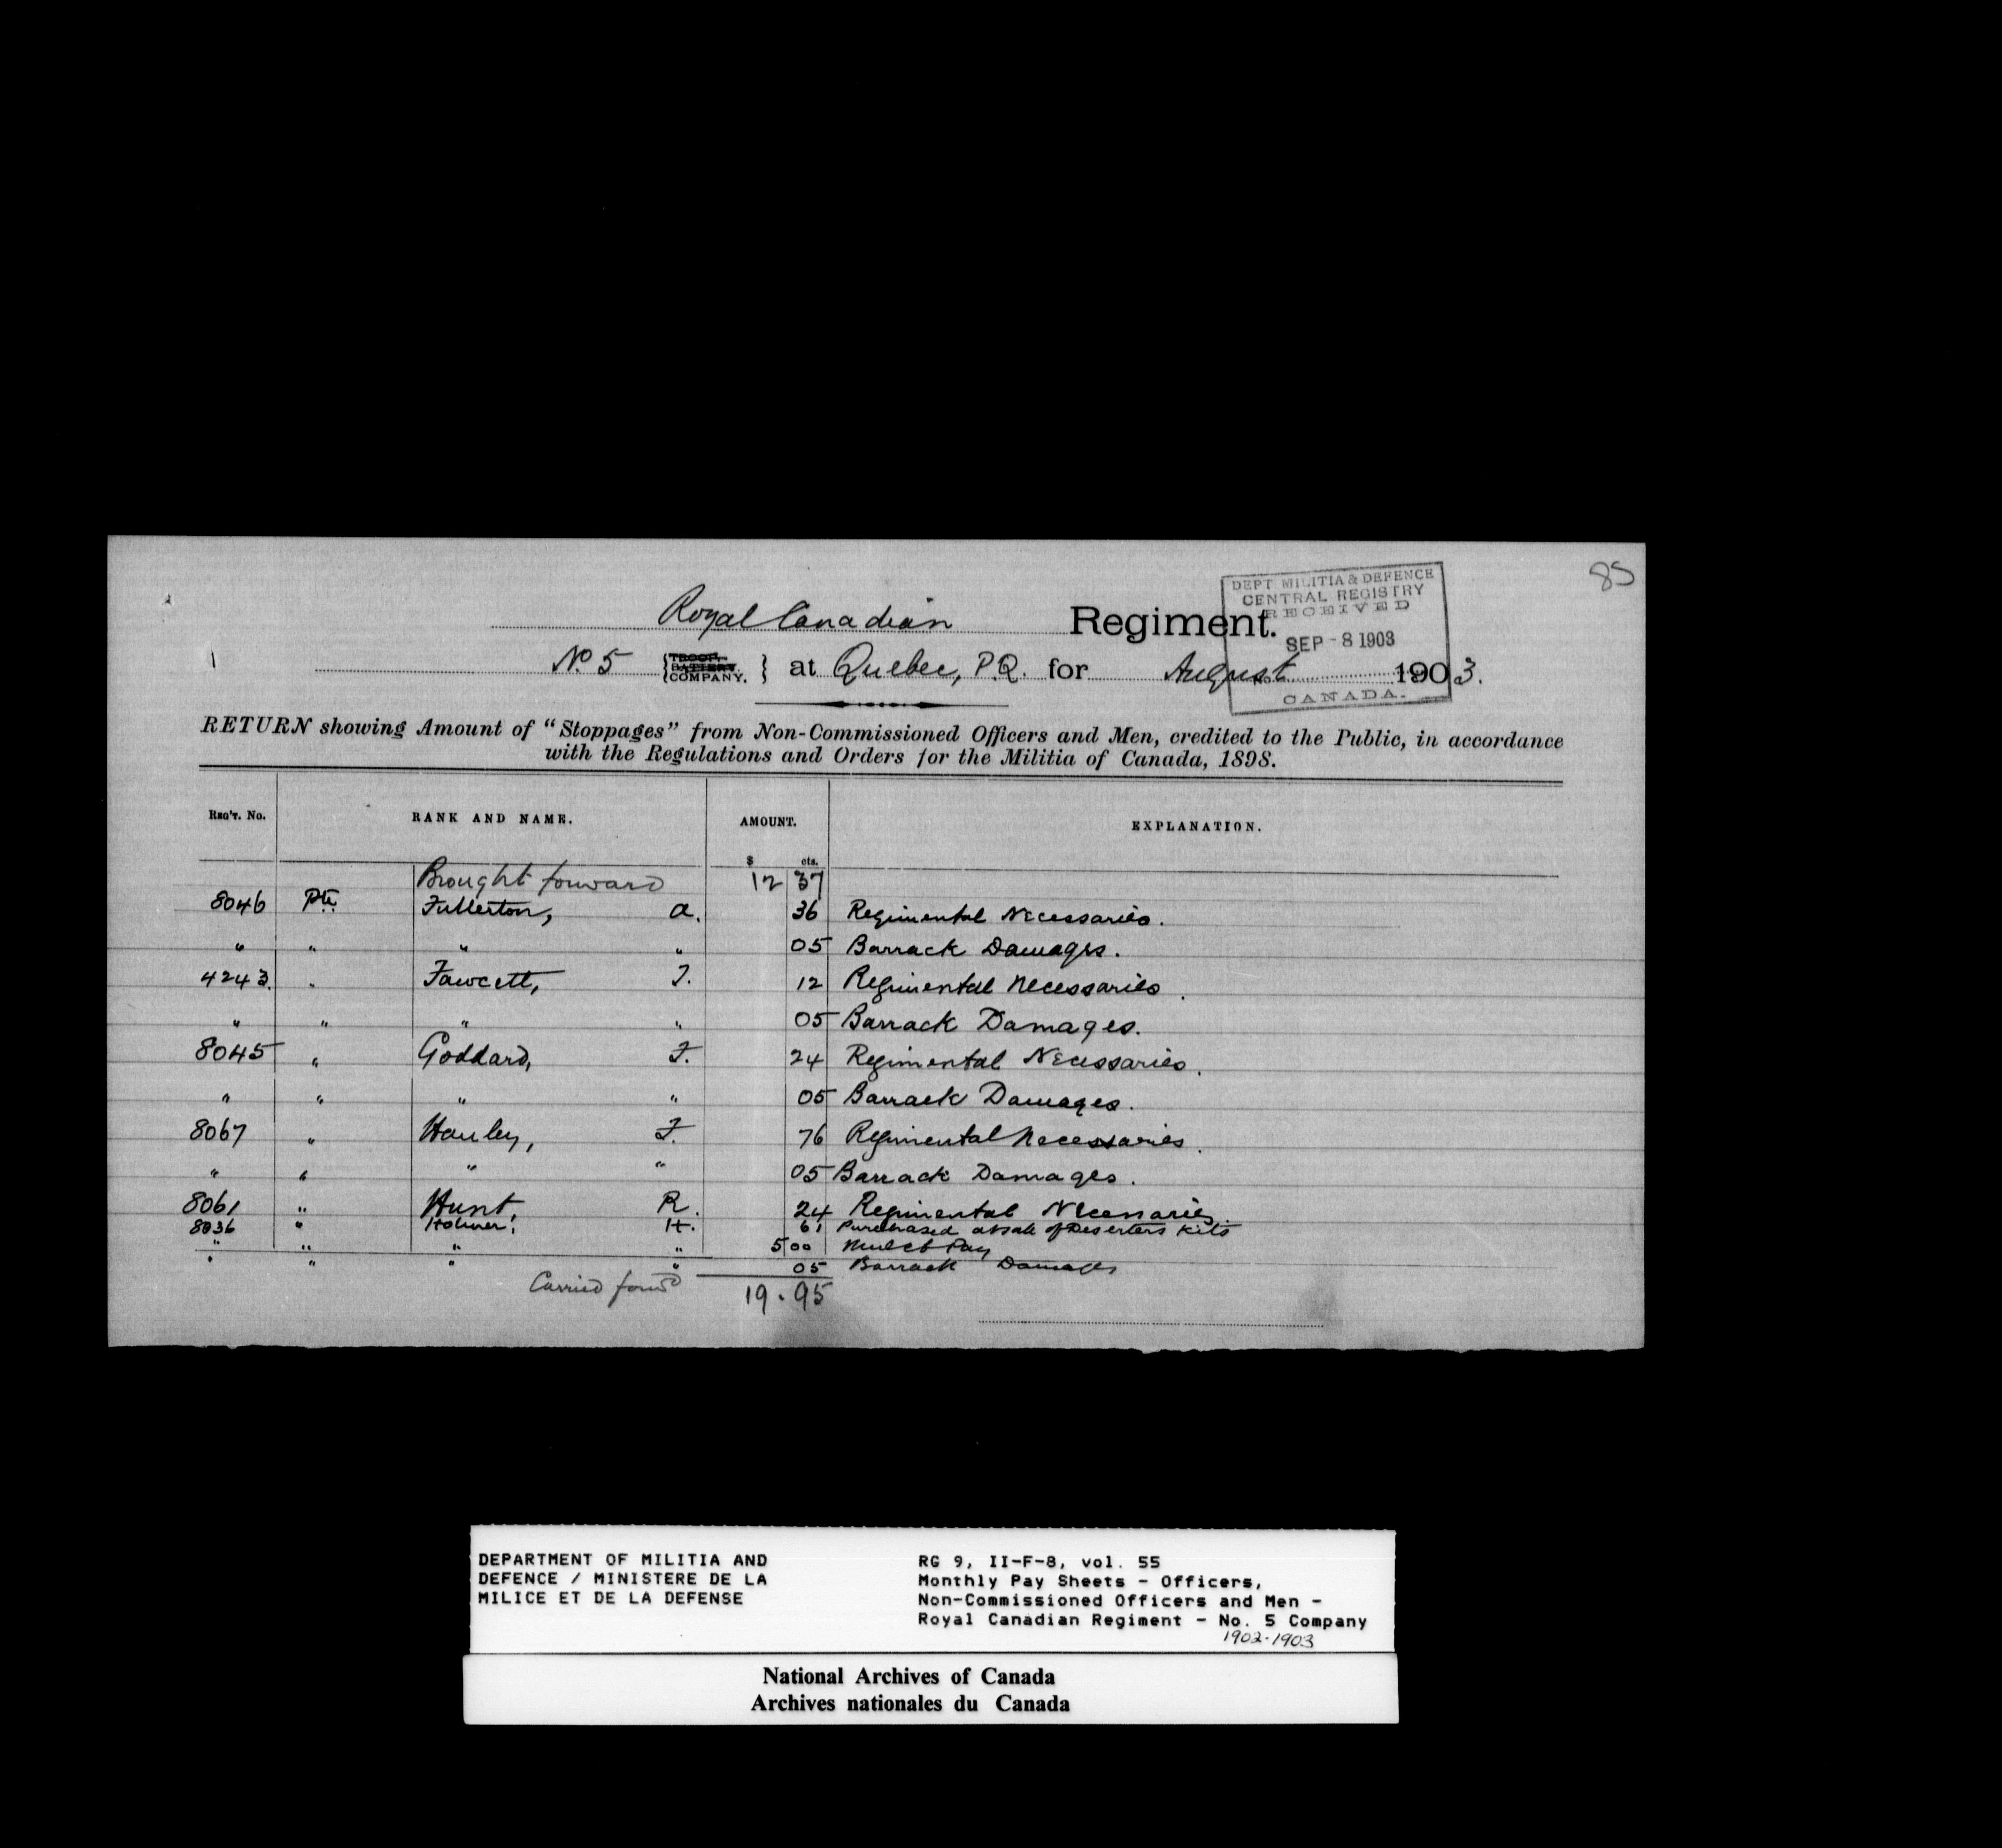 85
DEPT. MILITIA & DEFENCE
CENTRAL REGISTRY
RECEIVED
SEP - 8 1903
CANADA.
Royal Canadian Regiment.
1
No. 5 {TROOP, BATTERY, COMPANY.} at Quebec, P.Q. for August 1903.
RETURN showing Amount of "Stoppages" from Non-Commissioned Officers and Men, credited to the Public, in accordance
with the Regulations and Orders for the Militia of Canada, 1898.
REG'T. No. RANK AND NAME. AMOUNT. EXPLANATION.
$ cts.
Brought forward 12 37
8046 Pte. Fullerton, A. 36 Regimental Necessaries.
" " " " 05 Barrack Damages.
4243. " Fawcett, T. 12 Regimental Necessaries.
" " " " 05 Barrack Damages.
8045 " Goddard, F. 24 Regimental Necessaries.
" " " " 05 Barrack Damages.
8067 " Hanley, F. 76 Regimental Necessaries.
" " " " 05 Barrack Damages.
8061 " Hunt, R. 24 Regimental Necessaries.
8036 " H. 61 Purchased at sale of Deserters Kits
" " " " 5 00 Mulct Pay
" " " " 05 Barrack Damages
Carried forwd 19.95
DEPARTMENT OF MILITIA AND
DEFENCE / MINISTERE DE LA
MILICE ET DE LA DEFENSE
RG 9, II-F-8, vol. 55
Monthly Pay Sheets - Officers,
Non-Commissioned Officers and Men -
Royal Canadian Regiment - No. 5 Company
1902-1903
National Archives of Canada
Archives nationales du Canada